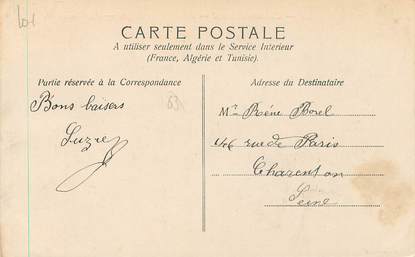 CARTE POSTALE
A utiliser seulement dans le Service Intérieur
(France, Algérie et Tunisie).
Partie réservée à la Correspondance
Bons baisers
Adresse du Destinataire
Mr Réné Borel
46 rue de Paris
Charenton
Seine